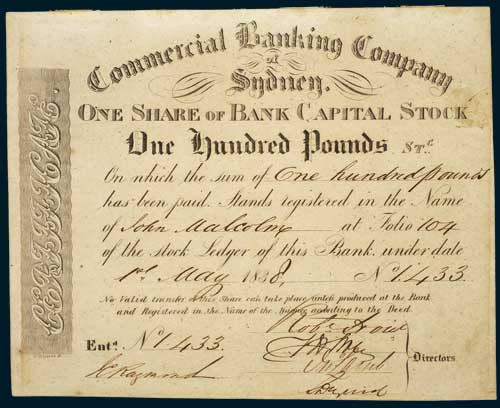 Commercial Banking Company
of
Sydney.
ONE SHARE OF BANK CAPITAL STOCK
One Hundred Pounds STG.
On which the sum of One hundred pounds
has been paid. Stands registered in the Name
of John Malcolm at Folio 104
of the stock Ledger of this Bank, under date
1st May 1838. No. 1433
No Valid transfer of this Share can take place until produced at the Bank
and Registered in the Name of the Holder according to the Deed
Entd. No. 1433.
Directors
CERTIFICATE